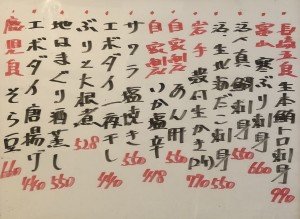 長崎五島 生本鮪トロ刺身 990
富山 寒ぶり刺身 660
活〆真鯛刺身 550
活〆生あなご刺身 550
岩手 殻付生かき(2ヶ) 770
自家製 あん肝 560
自家製 いか塩辛 418
サワラ塩焼き 560
エボダイ一夜干し 440
ぶりと大根煮 528
地はまぐり酒蒸し 550
エボダイ唐揚げ 440
鹿児島 そら豆 660